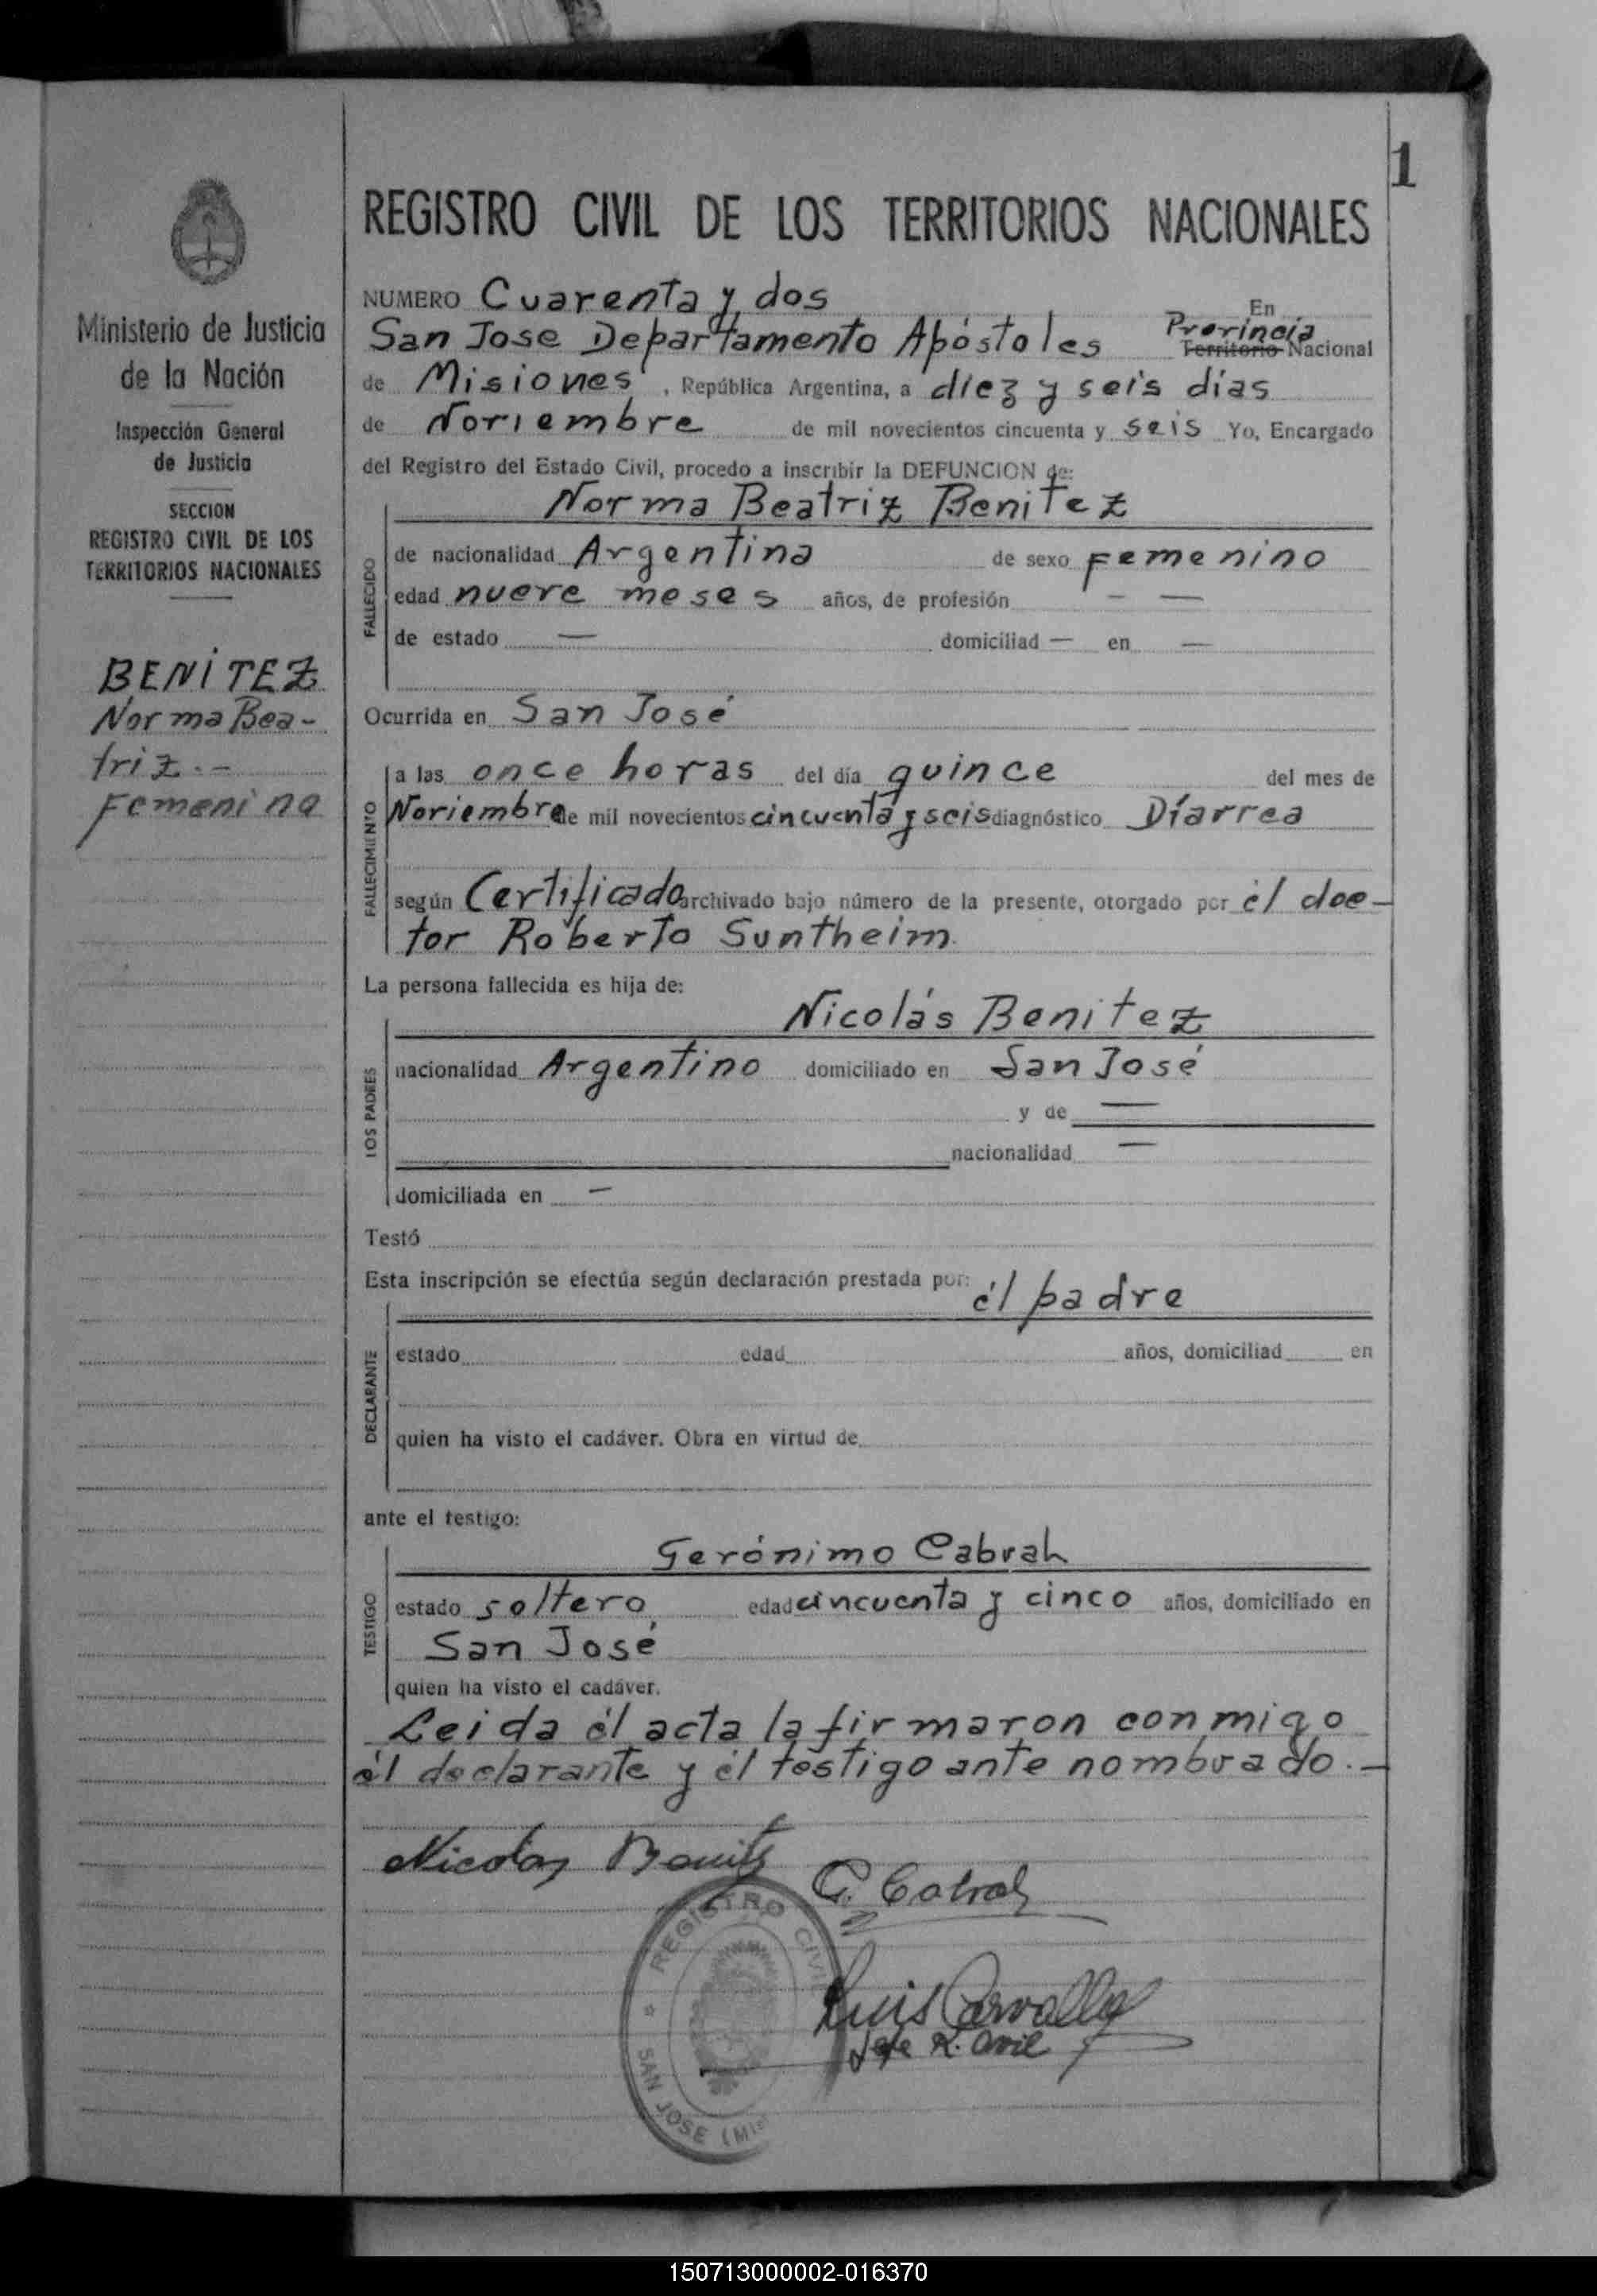 1
Ministerio de Justicia
de la Nación
Inspección General
de Justicia
SECCION
REGISTRO CIVIL DE LOS
TERRITORIOS NACIONALES
BENITEZ
Norma Bea-
triz.-
Femenina
REGISTRO CIVIL DE LOS TERRITORIOS NACIONALES
NUMERO Cuarenta y dos En
San Jose Departamento Apóstoles Provincia Territorio Nacional
de Misiones, República Argentina, a diez y seis días
de Noviembre de mil novecientos cincuenta y seis Yo, Encargado
del Registro del Estado Civil, procedo a inscribir la DEFUNCION de:
Norma Beatriz Benitez
FALLECIDO
de nacionalidad Argentina de sexo Femenino
edad nueve meses años, de profesión - —
de estado — domiciliad — en —
Ocurrida en San José
FALLECIMIENTO
a las once horas del día quince del mes de
Noviembre de mil novecientos cincuenta y seis diagnóstico Díarrea
según Certificado archivado bajo número de la presente, otorgado por él doc-
tor Roberto Suntheim
La persona fallecida es hija de:
LOS PADRES
Nicolás Benitez
nacionalidad Argentino domiciliado en San José
y de —
nacionalidad —
domiciliada en —
Testó
Esta inscripción se efectúa según declaración prestada por: él padre
DECLARANTE
estado edad años, domiciliad en
quien ha visto el cadáver. Obra en virtud de
ante el testigo:
TESTIGO
Gerónimo Cabral
estado soltero edad cincuenta y cinco años, domiciliado en
San José
quien ha visto el cadáver.
Leida él acta la firmaron conmigo
él declarante y él testigo ante nombrado.-
Nicolas Benitz
G. Cabral
REGISTRO CIVIL
SAN JOSE (Mis
Luis Carvallo
Jefe R. Civil
150713000002-016370